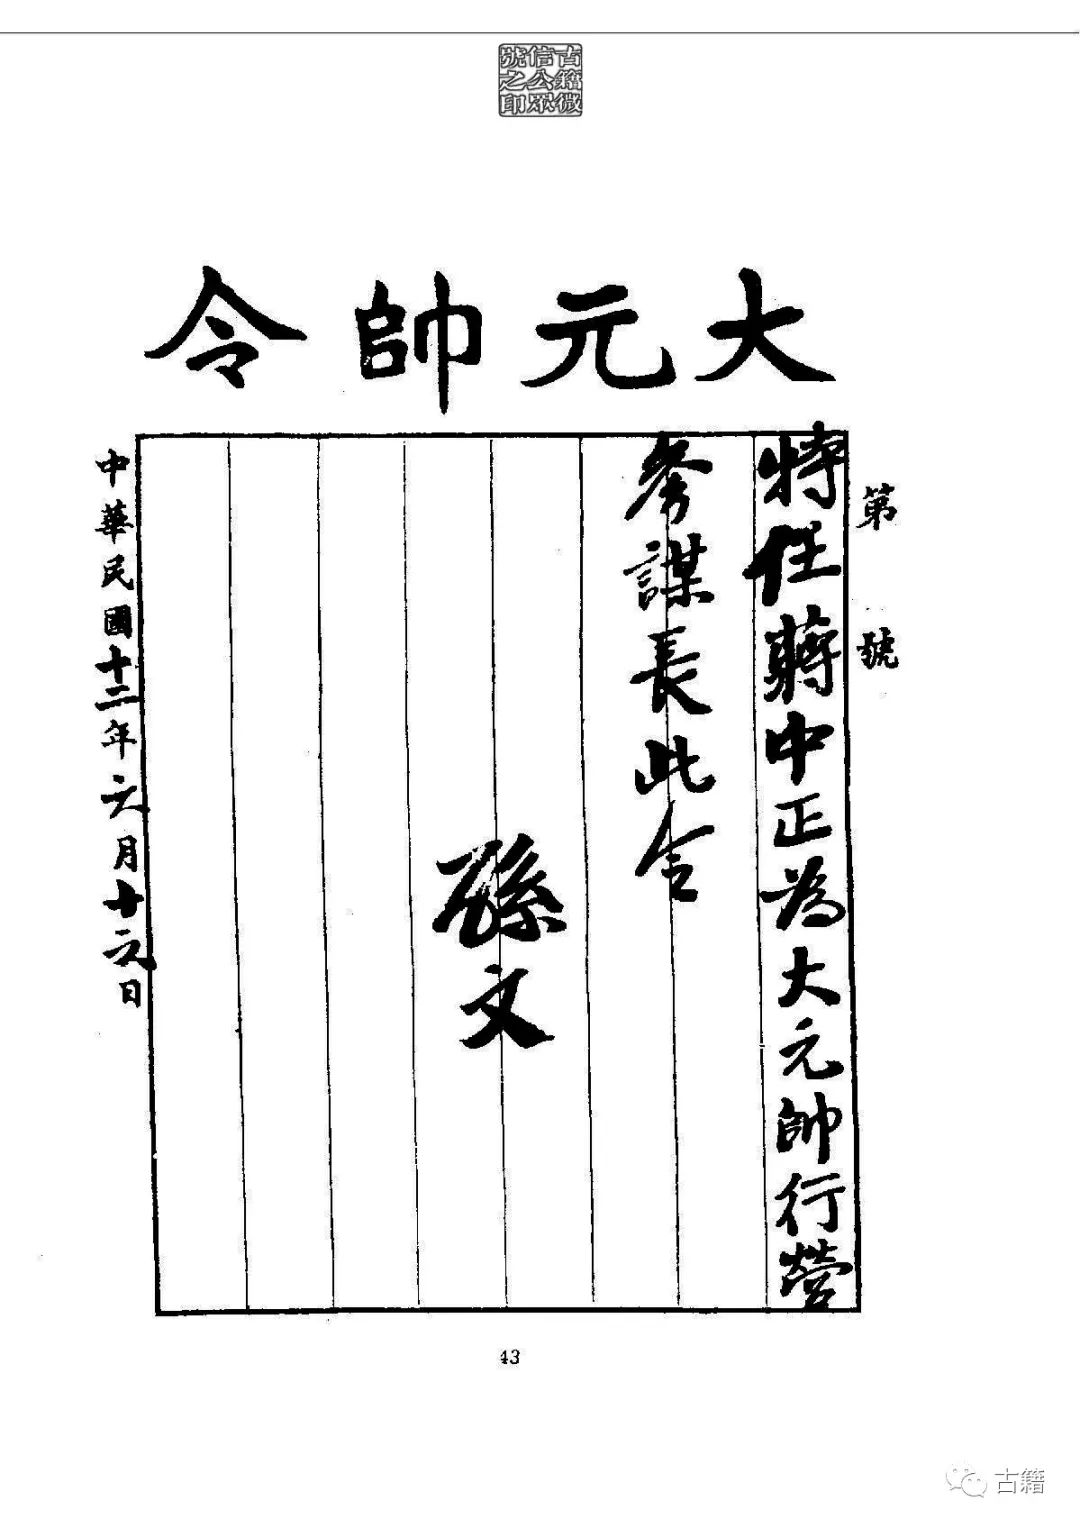 古籍微
信公眾
號之印
大元帥令
第 號
特任蔣中正為大元帥行營
參謀長此令
孫文
中華民國十二年六月十六日
43
古籍